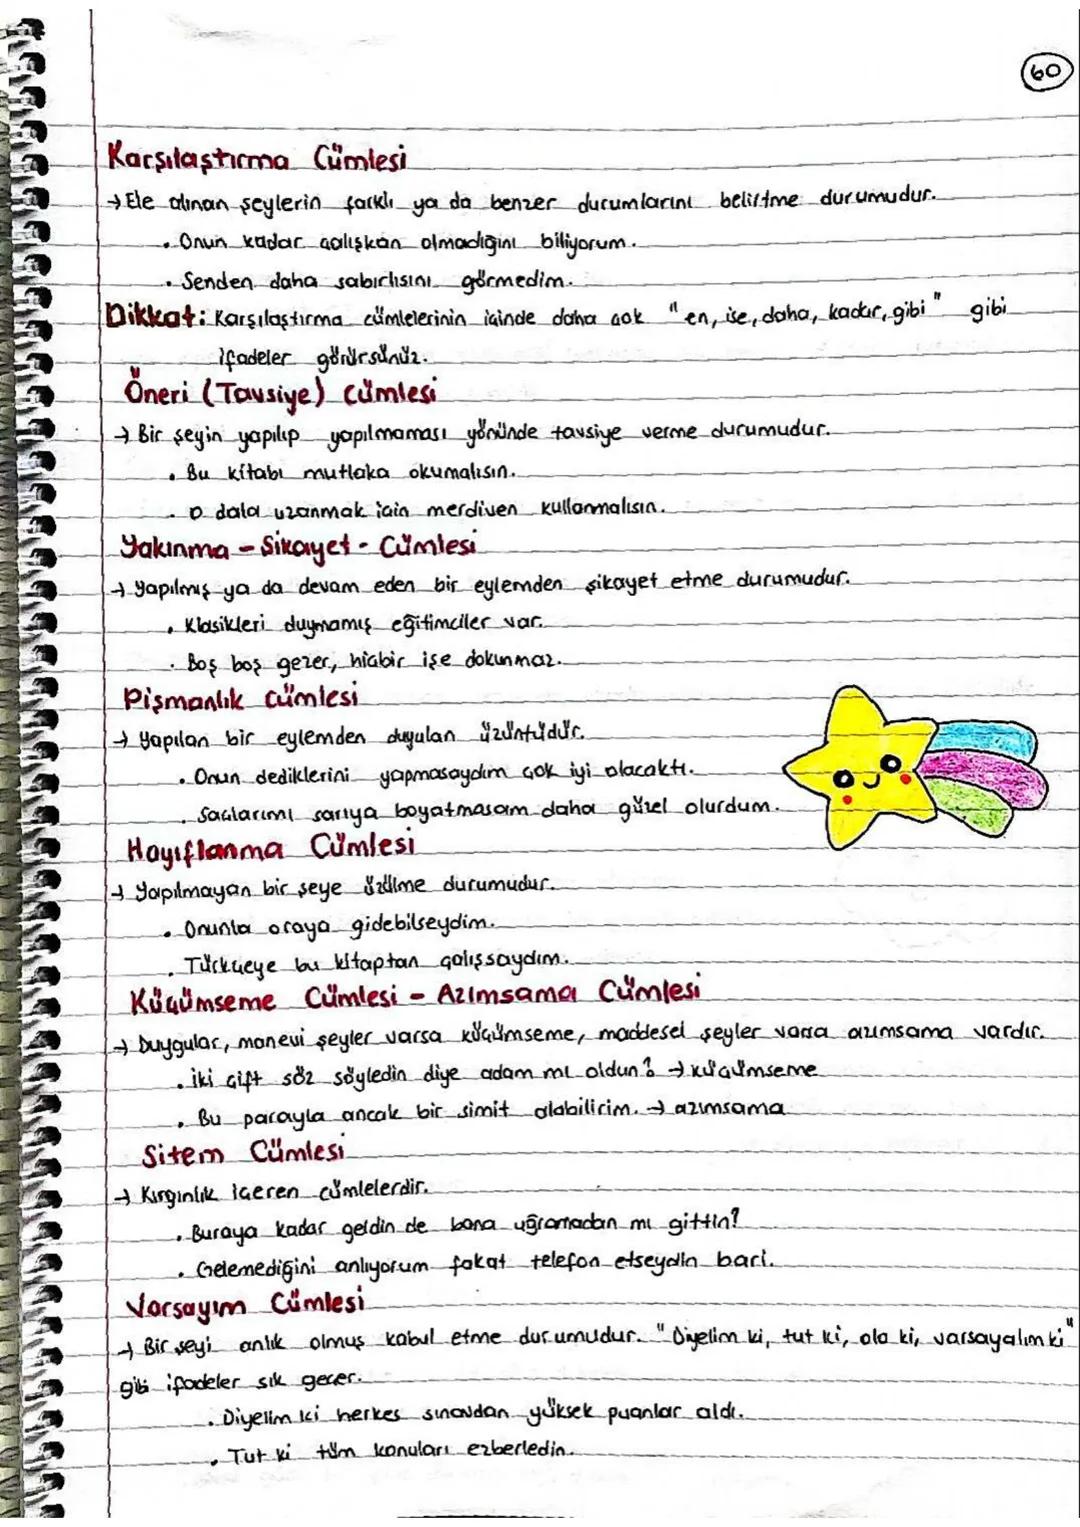 60
Karşılaştırma Cümlesi
→ Ele alınan şeylerin farklı ya da benzer durumlarını belirtme durumudur.
• Onun kadar çalışkan olmadığını biliyorum.
• Senden daha sabırlısını görmedim.
Dikkat: Karşılaştırma cümlelerinin içinde daha çok "en, ise, daha, kadar, gibi" gibi
ifadeler görürsünüz.
Öneri (Tavsiye) Cümlesi
→ Bir şeyin yapılıp yapılmaması yönünde tavsiye verme durumudur.
• Bu kitabı mutlaka okumalısın.
• O dala uzanmak için merdiven kullanmalısın.
Yakınma - Şikayet - Cümlesi
→ Yapılmış ya da devam eden bir eylemden şikayet etme durumudur.
• Klasikleri duymamış eğitimciler var.
• Boş boş gezer, hiçbir işe dokunmaz.
Pişmanlık Cümlesi
→ Yapılan bir eylemden duyulan üzüntüdür.
• Onun dediklerini yapmasaydım çok iyi olacaktı.
• Saçlarımı sarıya boyatmasam daha güzel olurdum.
Hayıflanma Cümlesi
→ Yapılmayan bir şeye üzülme durumudur.
• Onunla oraya gidebilseydim.
• Türkçeye bu kitaptan çalışsaydım.
Küçümseme Cümlesi - Azımsama Cümlesi
→ Duygular, manevi şeyler varsa küçümseme, maddesel şeyler varsa azımsama vardır.
• İki çift söz söyledin diye adam mı oldun? → küçümseme
• Bu parayla ancak bir simit alabilirim. → azımsama
Sitem Cümlesi
→ Kırgınlık içeren cümlelerdir.
• Buraya kadar geldin de bana uğramadan mı gittin?
• Gelemediğini anlıyorum fakat telefon etseydin bari.
Varsayım Cümlesi
→ Bir şeyi anlık olmuş kabul etme durumudur. "Diyelim ki, tut ki, ola ki, varsayalım ki"
gibi ifadeler sık geçer.
• Diyelim ki herkes sınavdan yüksek puanlar aldı.
• Tut ki tüm konuları ezberledin.